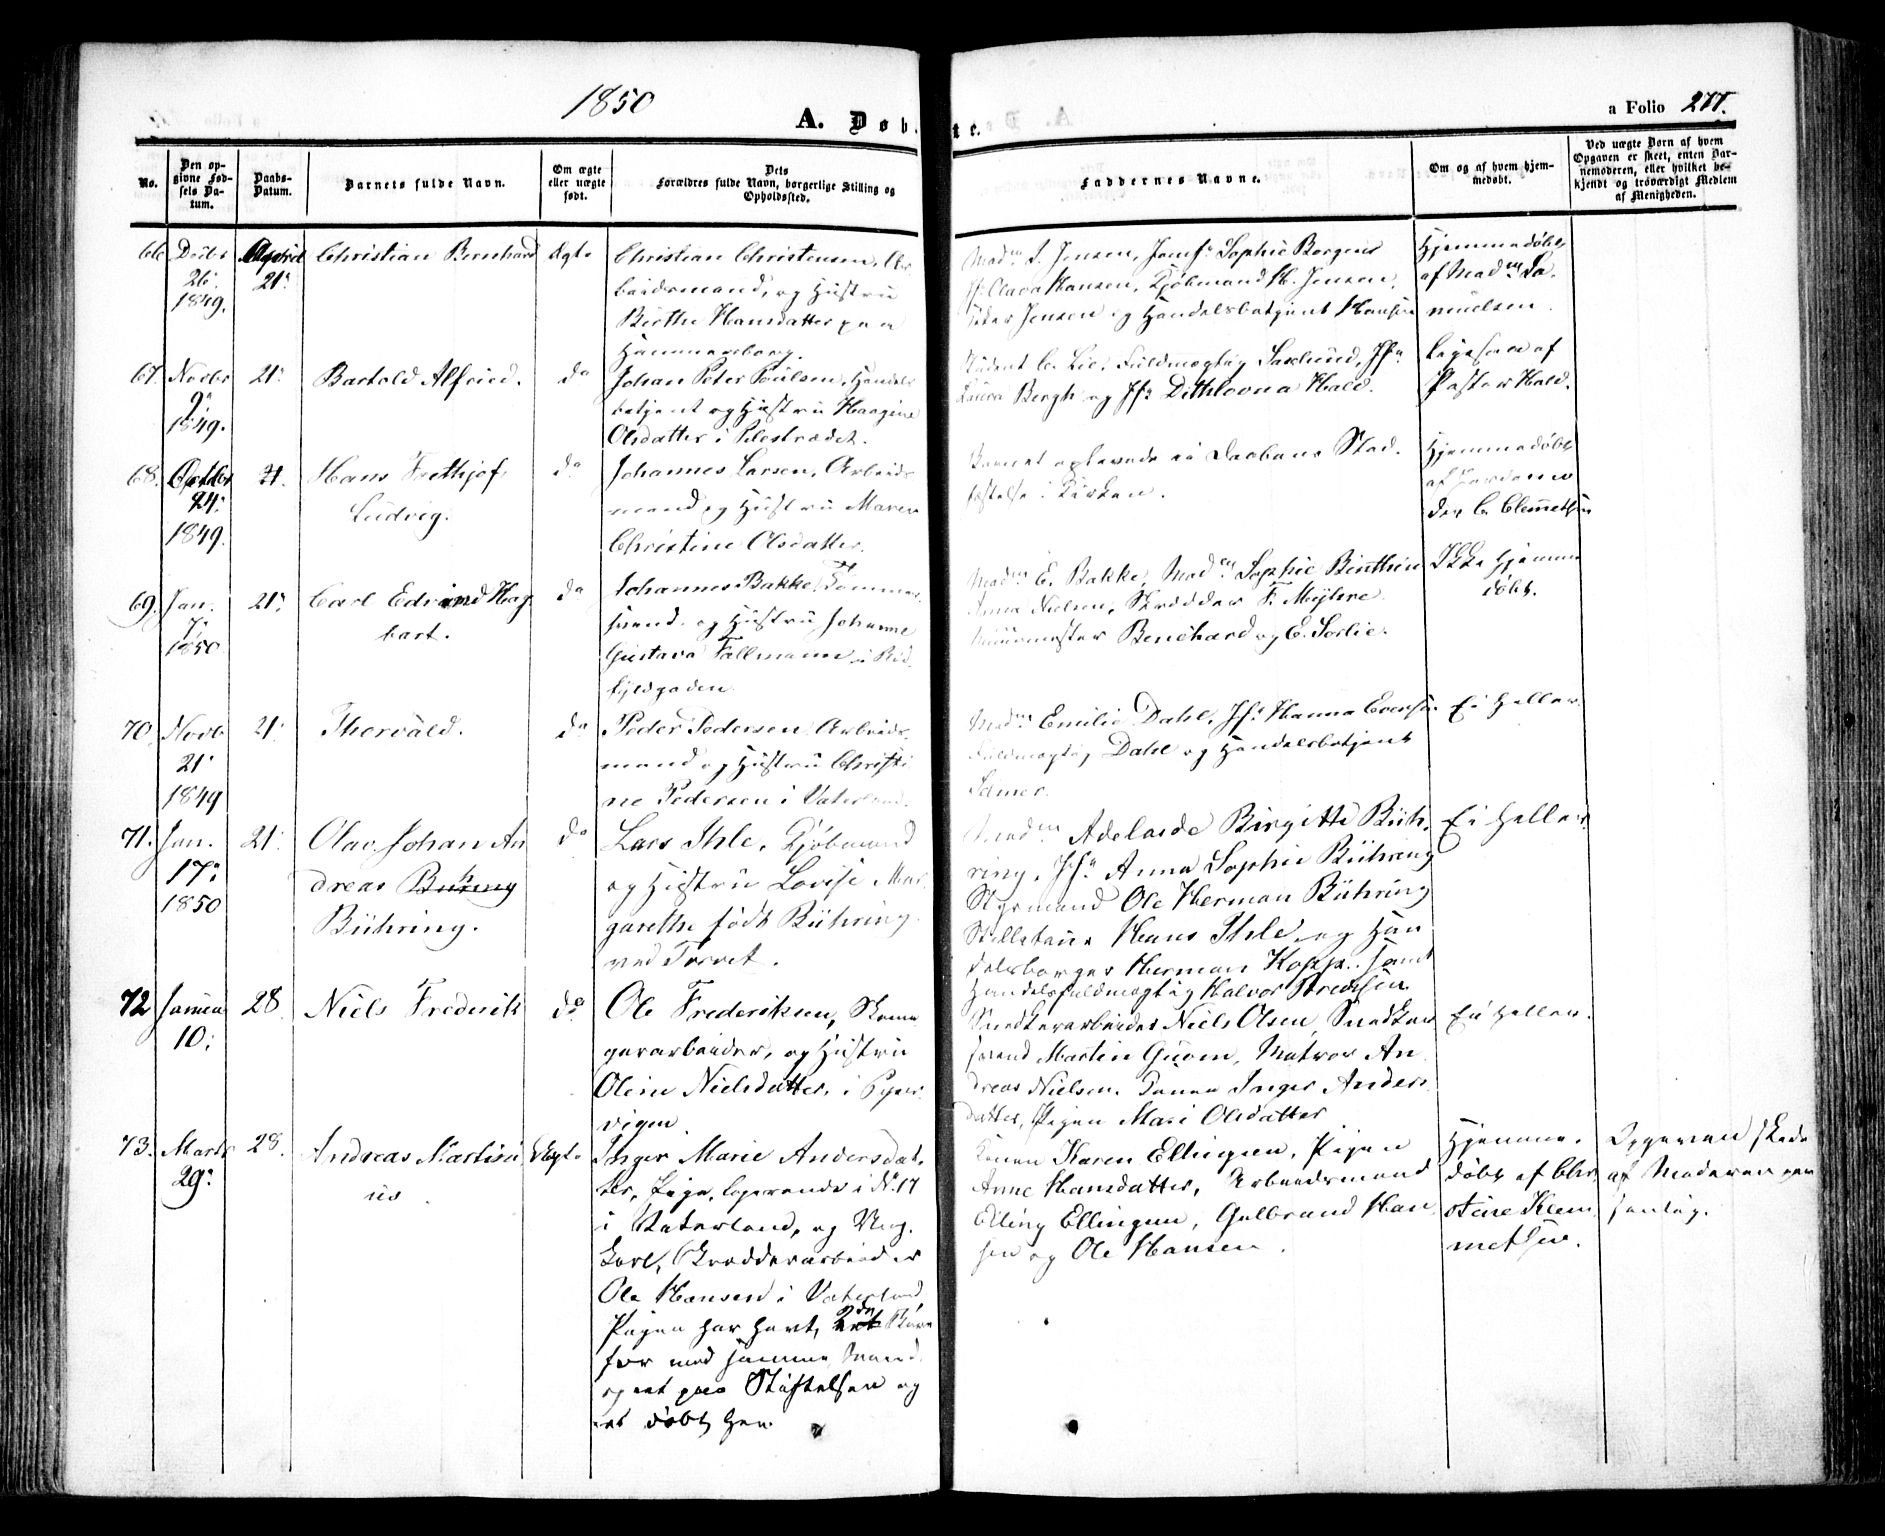 1850
A. Døbte.
a Folio 277.
No.
Den opgivne Fødsels Datum.
Daabs-Datum.
Barnets fulde Navn.
Om ægte eller uægte født.
Dets Forældres fulde Navn, borgerlige Stilling og Opholdssted.
Faddernes Navne.
Om og af hvem hjemmedøbt.
Ved uægte Børn af hvem Opgaven er skeet, enten Barnemoderen, eller hvilket bekjendt og troværdigt Medlem af Menigheden.
66. Decbr 26. 1849.
April 21.
Christian Bernhard
Ægte
Christian Christensen, Ar
beidsmand, og Hustru
Berthe Hansdatter paa
Hammersborg.
Madm J. Jensen, Jomfr Sophie Borgens
Jfr Olava Hansen, Kjøbmand H. Jensen,
Peder Jensen og Handelsbetjent Hansen
Hjemmedøbt
af Madm Sa
muelsen.
67. Novbr 9. 1849.
21.
Bartold Alfried.
do
Johan Peter Poulsen, Handels
betjent og Hustru Haagine
Olsdatter i Pilestrædet.
Student C. Lie, Fuldmægtig Saxlund, Jfr
Laura Bergh og Jfr Dithlovna Hald.
Ligesaa af
Pastor Hald.
68. Octbr 24. 1849.
21.
Hans Frithjof
Ludvig.
do
Johannes Larsen, Arbeids
mand og Hustru Maren
Christine Olsdatter.
Barnet oplevede ei Daabens Stad
fæstelse i Kirken.
Hjemmedøbt
af Jordemo
der C. Clemetsen
69. Jan. 7. 1850
21.
Carl Edvard Hag
bart.
do
Johannes Bakke, Tømmer
svend og Hustru Johanne
Gustava Fallmann i Rød
fyldgaden.
Madm E. Bakke, Madm Sophie Benthin
Anna Nielsen, Skrædder F. Meylere
Muurmester Benehard og E. Sørlie.
Ikke hjemme
døbt.
70. Novb 21. 1849
21.
Thorvald.
do
Peder Pedersen, Arbeids
mand og Hustru Christi
ne Pedersen i Vaterland.
Madm Emilie Dahl, Jfr Hanna Evensen
Fuldmægtig Dahl og Handelsbetjent
Selmer.
Ei heller.
71. Jan. 17. 1850
21.
Olav Johan An
dreas
Bühring.
do
Lars Ihle, Kjøbmand
og Hustru Lovise Mar
garethe født Bühring
ved Torvet.
Madm Adelaide Birgitte Büh
ring, Jfr Anna Sophie Bühring
Styrmand Ole Herman Bühring
Hans Ihle og Han
delsborger Herman Kopp, samt
Handelsfuldmægtig Halvor Bredesen
Ei heller.
72 Januar 10.
28.
Niels Frederik
do
Ole Frederiksen, Skoma
gerarbeider, og Hustru
Oline Nielsdatter, i Piper
vigen
Snedkerarbeider Niels Olsen, Snedker
svend Martin Guom, Matros An
dreas Nielsen. Konen Inger Anders
datter, Pigen Mari Olsdatter
Ei heller.
73. Marts 29.
28.
Andreas Martini
us.
Uægte
Inger Marie Andersdat
ter, Pige, logerende i N. 17
i Vaterland, og Ung
karl, Skrædderarbeider
Ole Hansen i Vaterland
Pigen har havt 2de Børn
før med samme Mand
og eet paa Stiftelsen og
et døbt her.
Konen Karen Ellingsen, Pigen
Anne Hansdatter, Arbeidsmand
Elling Ellingsen, Gulbrand Han
sen og Ole Hansen.
Hjemme
døbt af Chri
stine Klem
metsen.
Opgaven skede
af Moderen per
sonlig.